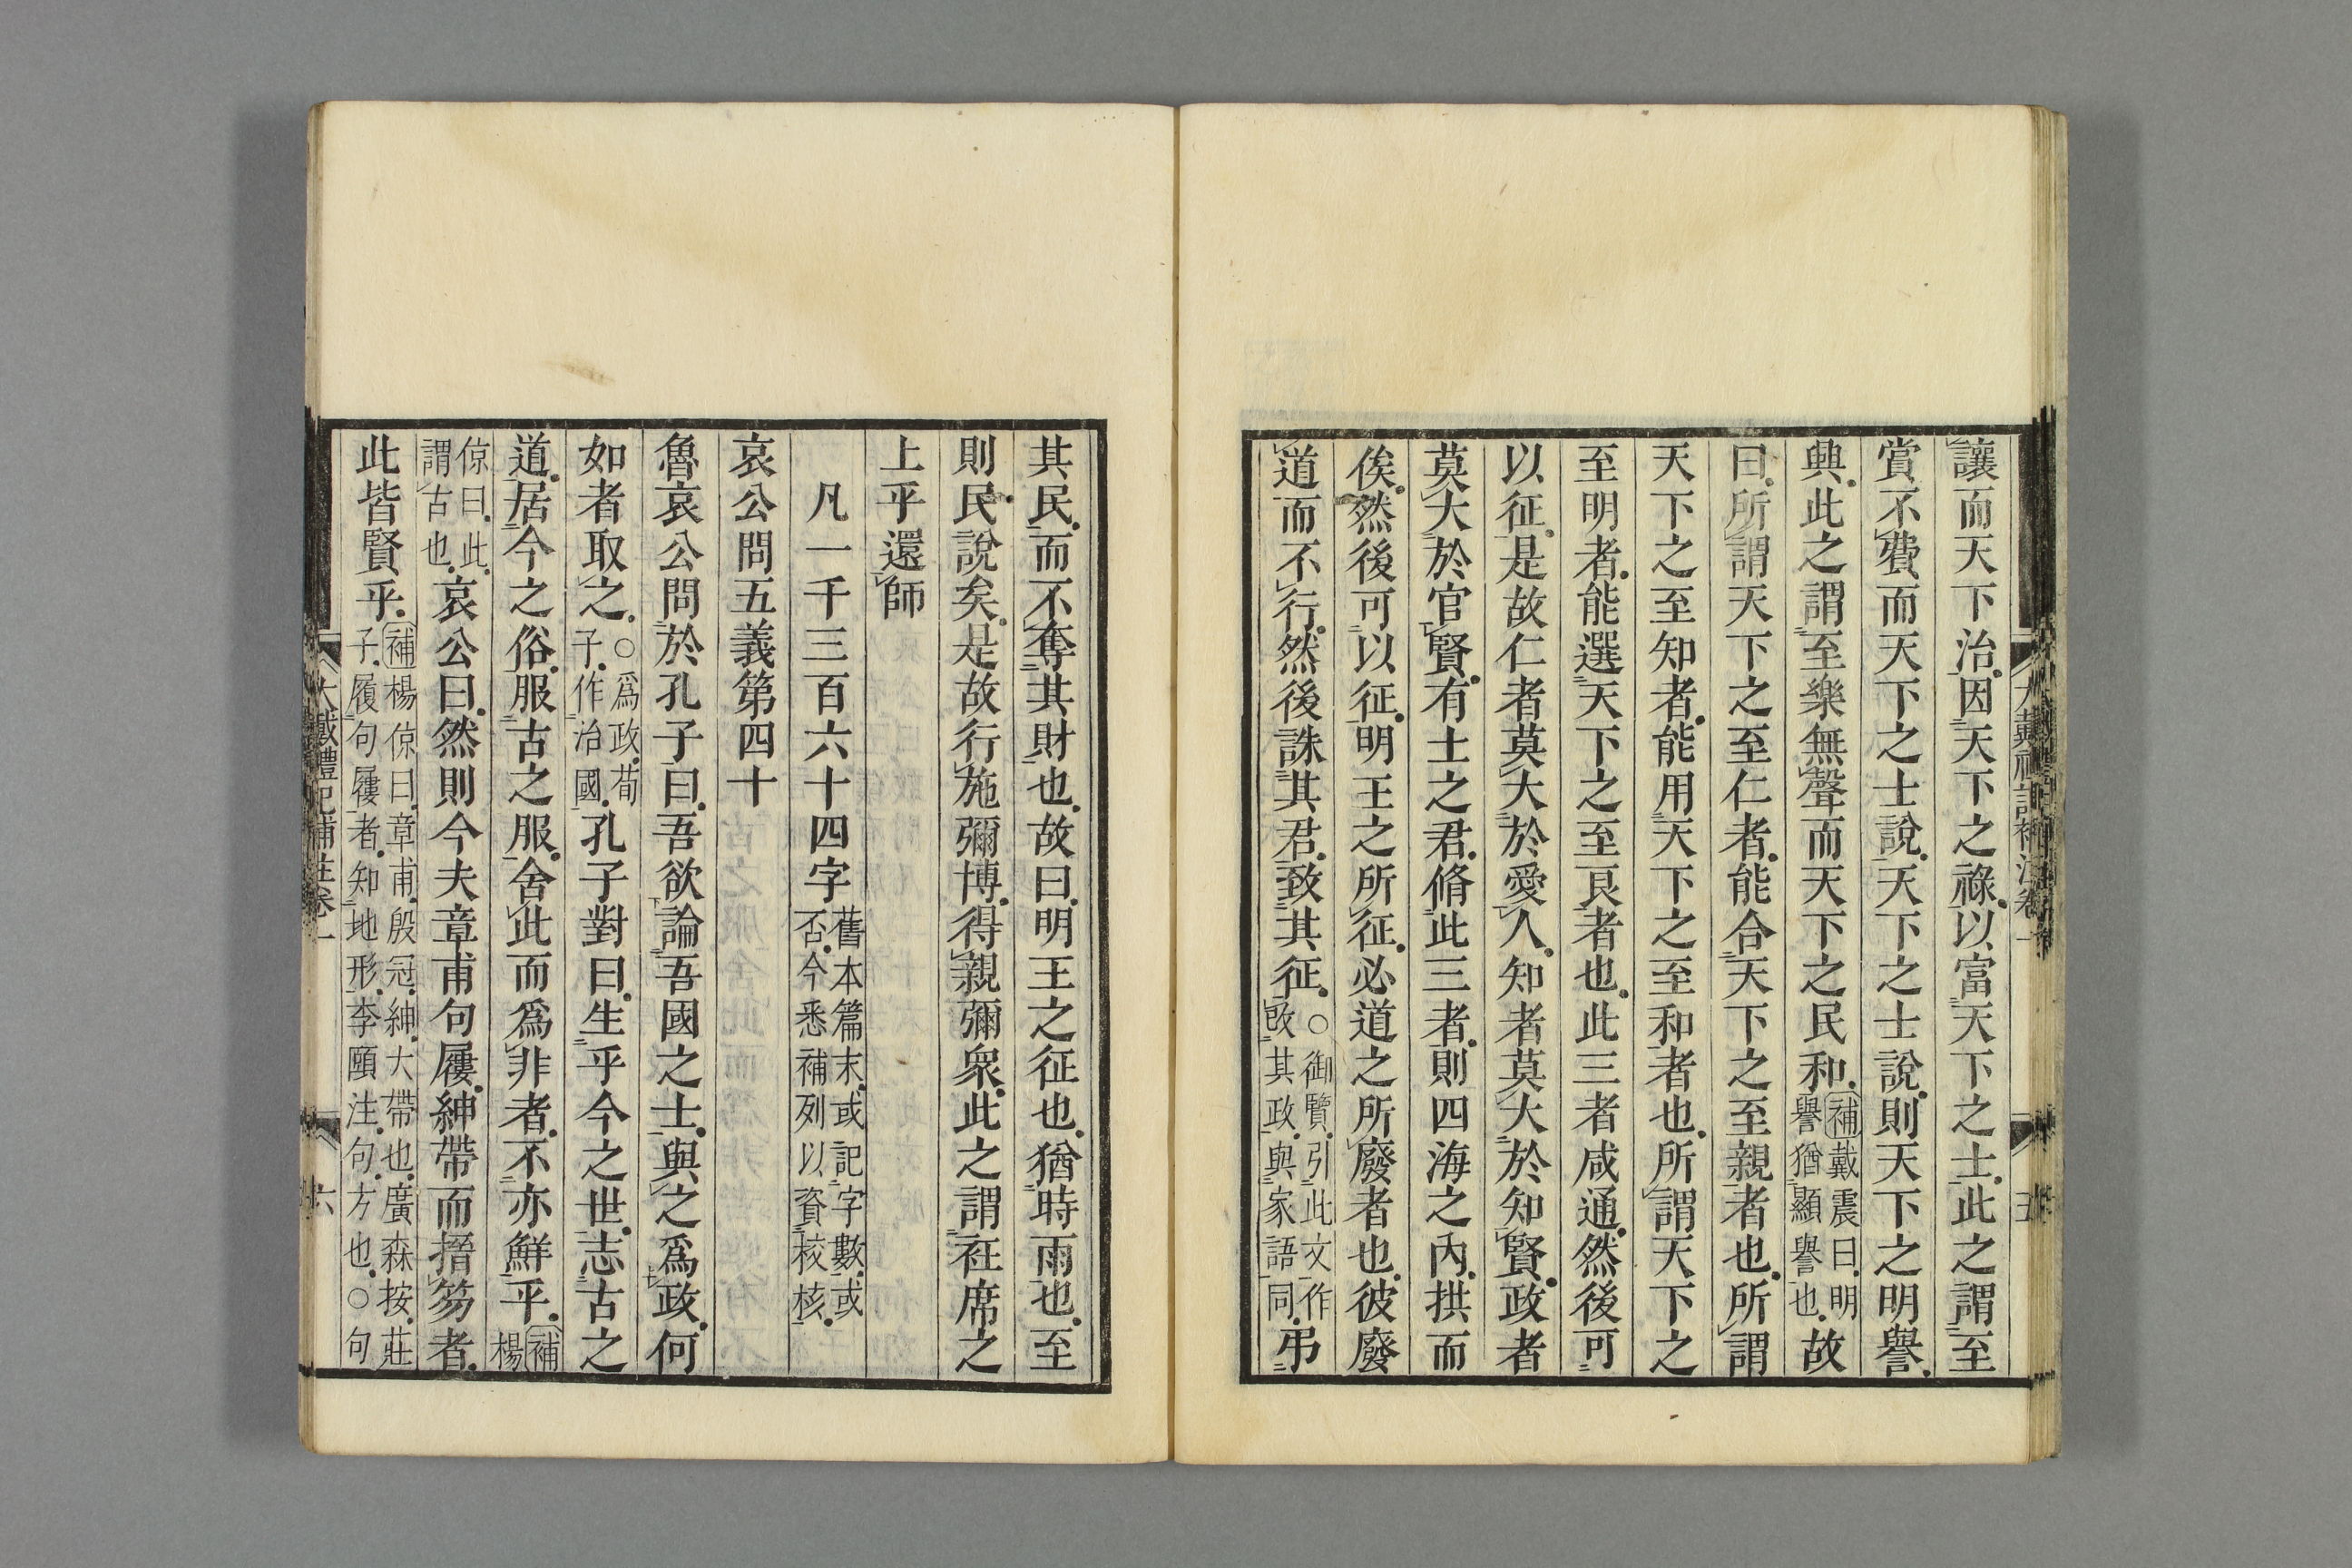 讓而天下治。因天下之祿。以富天下之士。此之謂至
賞不費而天下之士說。天下之士說。則天下之明譽
興。此之謂至樂無聲而天下之民和。補戴震曰。明譽猶顯譽也。故
曰。所謂天下之至仁者。能合天下之至親者也。所謂
天下之至知者。能用天下之至和者也。所謂天下之
至明者。能選天下之至良者也。此三者咸通。然後可
以征。是故仁者莫大於愛人。知者莫大於知賢。政者
莫大於官賢。有土之君。脩此三者。則四海之內。拱而
俟。然後可以征。明王之所征。必道之所廢者也。彼廢
道而不行。然後誅其君。致其征。○御覽。引此文作改其政。與家語同。弔
其民。而不奪其財也。故曰。明王之征也。猶時雨也。至
則民說矣。是故行施彌博。得親彌衆。此之謂衽席之
上乎還師
凡一千三百六十四字 舊本篇末。或記字數。或否。今悉補列以資校核。
哀公問五義第四十
魯哀公問於孔子曰。吾欲論吾國之士。與之爲政。何
如者取之。○爲政。荀子。作治國。孔子對曰。生乎今之世。志古之
道。居今之俗。服古之服。舍此而爲非者。不亦鮮乎。補楊
倞曰。此。謂古也。哀公曰。然則今夫章甫句屨。紳帶而搢笏者。
此皆賢乎。補楊倞曰。章甫。殷冠。紳。大帶也。廣森按。莊子。履句屨者。知地形。李頤注。句。方也。○句
大戴禮記補注卷一
五
大戴禮記補注卷一
六